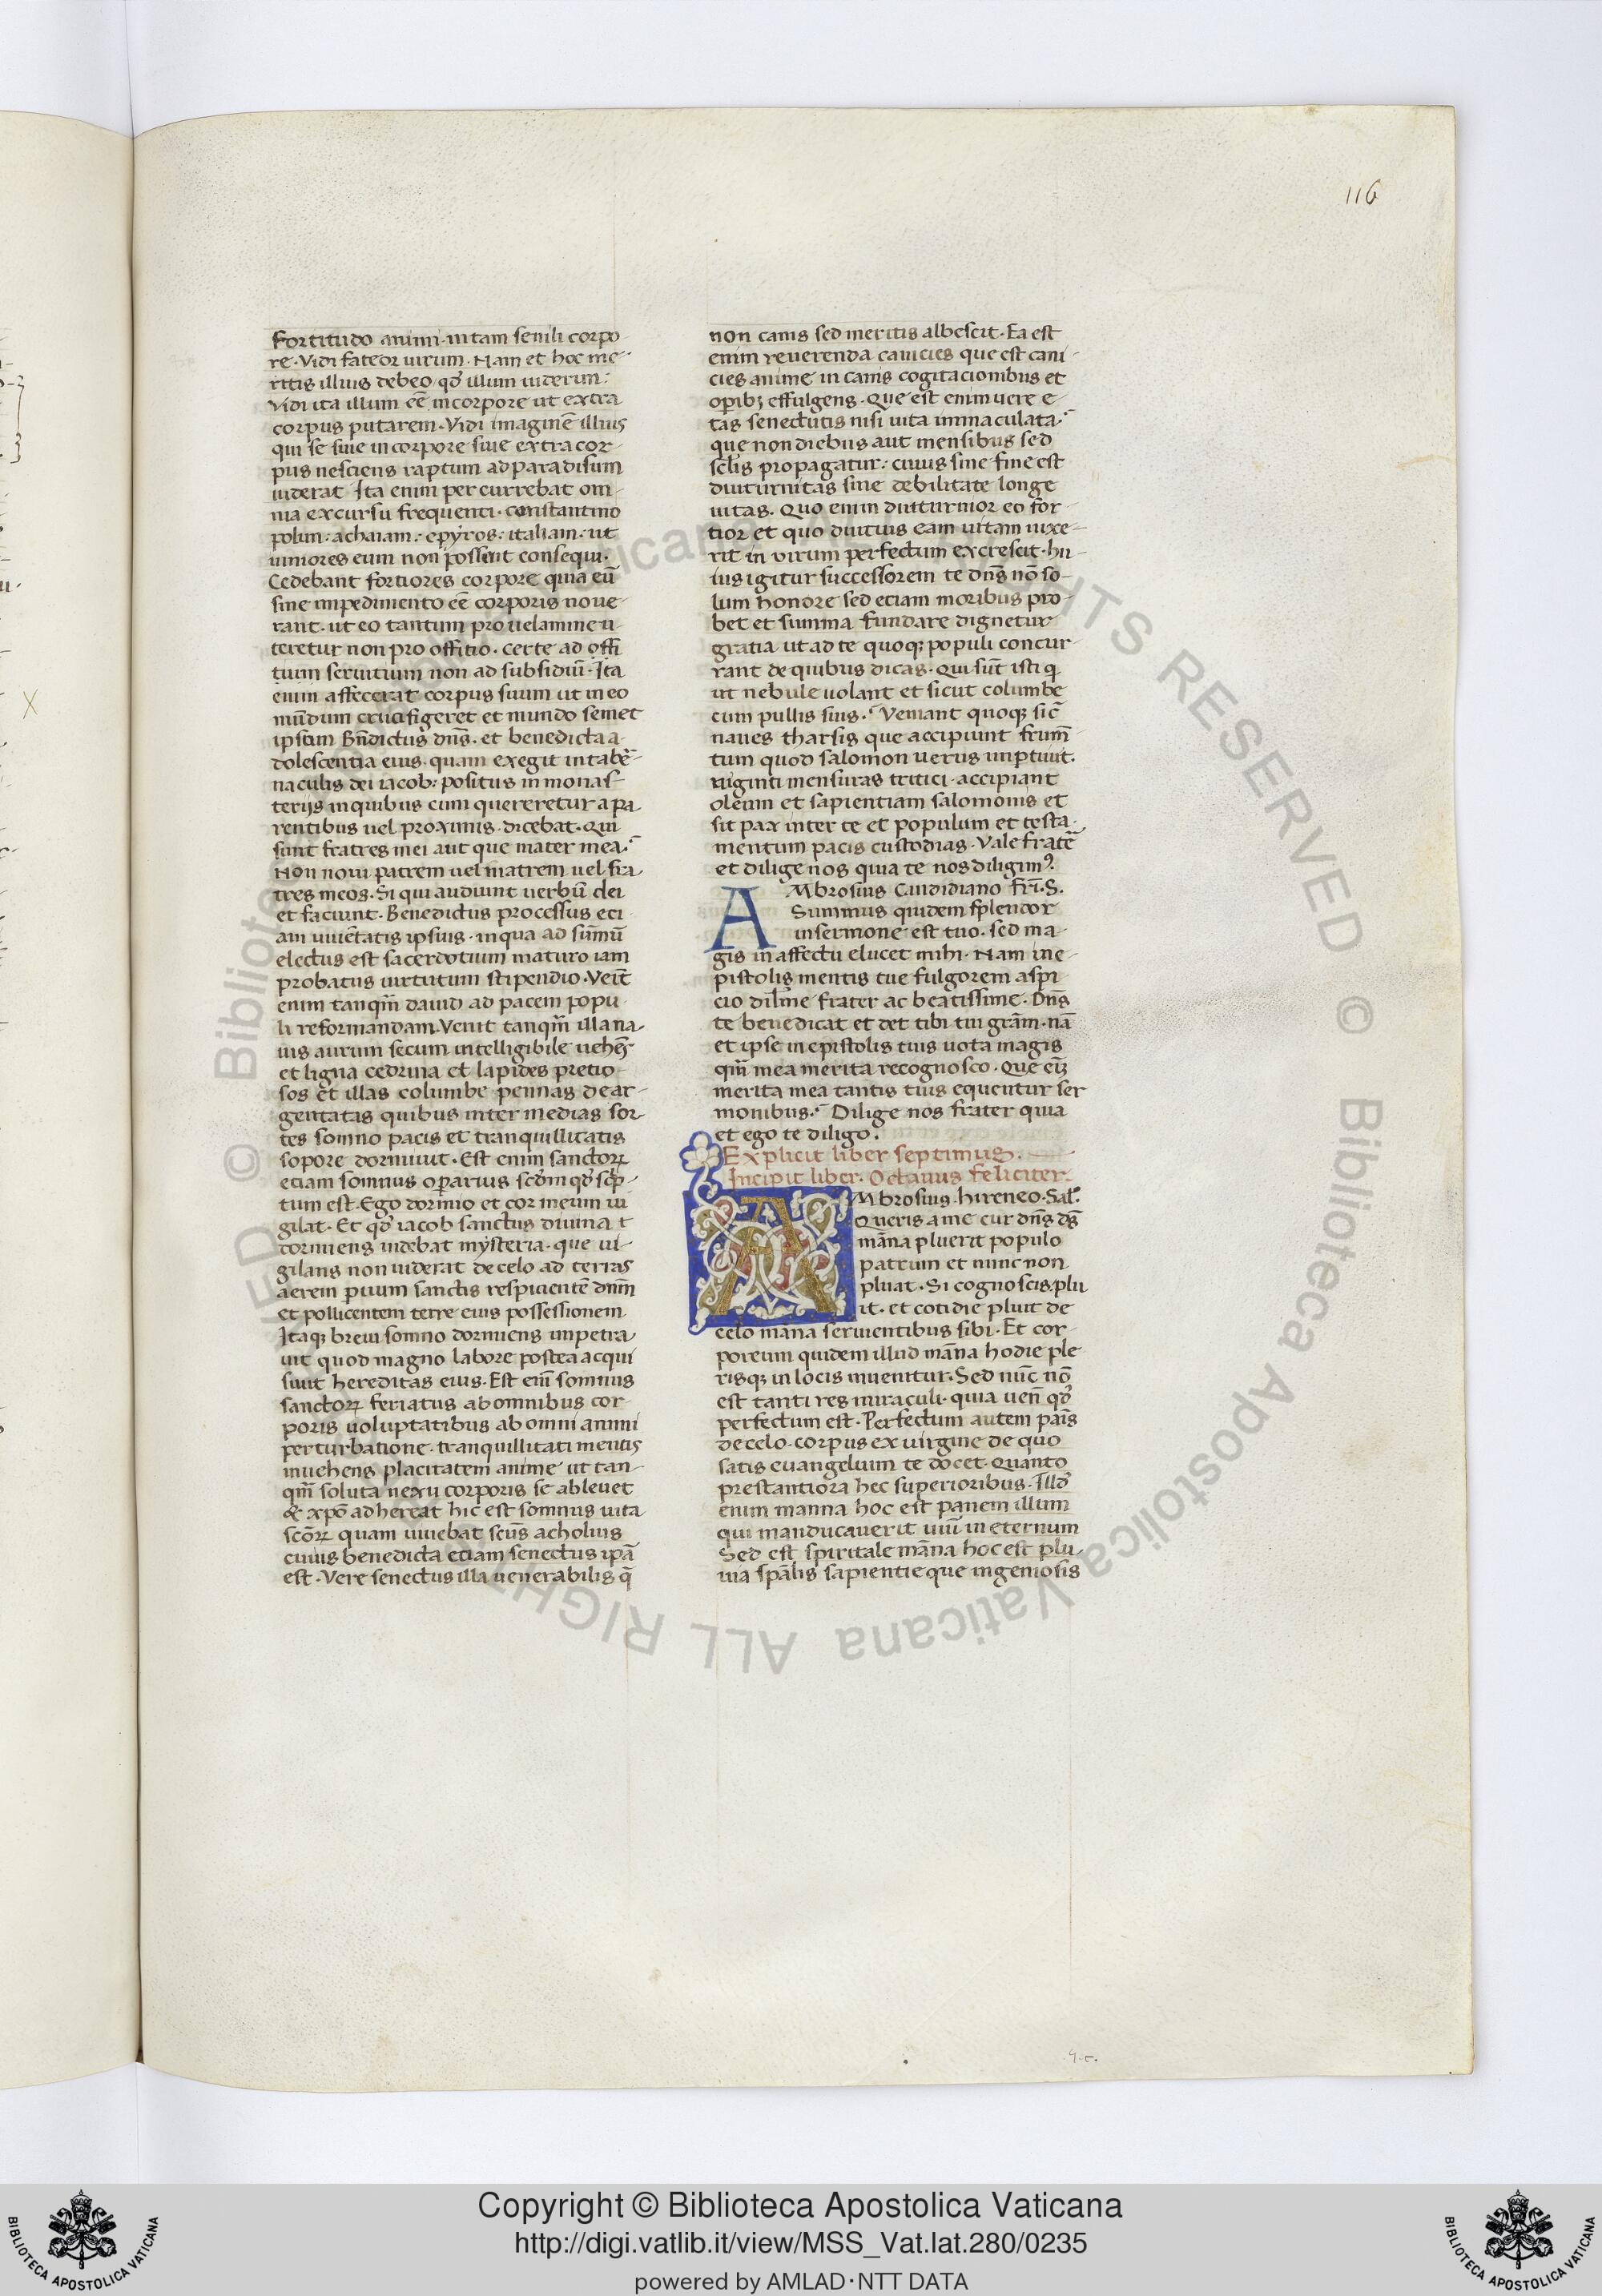 116
fortitudo animi. in tam senili corpo
re. Vidi fateor uirum. Nam et hoc me-
ritis illius debeo qđ illum uiderim:
Vidi ita illum eē in corpore ut extra
corpus putarem. Vidi imaginē illius
qui se siue in corpore siue extra cor-
pus nesciens raptum ad paradisum
uiderat. Ita enim percurrebat om-
nia excursu frequenti. constantino
polim: achaiam: epyros: italiam: ut
iuniores eum non possent consequi.
Cedebant fortiores corpore quia eū
sine impedimento eē corporis noue-
rant. ut eo tantum pro uelamine u-
teretur non pro offitio. certe ad offi
tium seruitium non ad subsidiū. Ita
enim affecerat corpus suum ut in eo
mūdum crucifigeret et mundo semet
ipsum Bn̄dictus dn̄s. et benedicta a-
dolescentia eius. quam exegit in tabẽ-
naculis dei iacob: positus in monas
terijs in quibus cum quereretur a pa
rentibus uel proximis. dicebat. Qui
sunt fratres mei aut que mater mea.
Non noui patrem uel matrem uel fra
tres meos. Si qui audiunt uerbū dei
et faciunt. Benedictus processus eci
am iuuētatis ipsius. in qua ad sūmū
electus est sacerdotium maturo iam
probatus uirtutum stipendio. Veīt
enim tanqm̄ dauid ad pacem popu
li reformandam. Venit tanqm̄ illa na-
uis aurum secum intelligibile uehēs
et ligna cedrina et lapides pretio
sos et illas columbe pennas dear-
gentatas quibus inter medias sor-
tes somno pacis et tranquillitatis
sopore dormiuit. Est enim sanctoꝝ
eciam somnus operarius scđm qđ scp̄-
tum est. Ego dormio et cor meum ui
gilat. Et qđ iacob sanctus diuina t
dormiens uidebat mysteria. que ui-
gilans non uiderat de celo ad terras
aerem peruium sanctis respiciente dnm̄
et pollicentem terre eius possessionem
Itaqꝫ breui somno dormiens impetra
uit quod magno labore postea acqui
siuit hereditas eius. Est eīm somnus
sanctoꝝ feriatus ab omnibus cor
poris uoluptatibus ab omni animi
perturbatione. tranquillitati mentis
inuehens placitatem anime ut tan-
qm̄ soluta nexu corporis se ableuet
& xp̄o adhereat hic est somnus uita
scōꝝ quam uiuebat scūs acholius
cuius benedicta eciam senectus ip̄a
est. Vere senectus illa uenerabilis q̄
non canis sed meritis albescit. Ea est
enim reuerenda canicies que est cani-
cies anime in canis cogitacionibus et
opibꝫ effulgens. Que est enim uere e-
tas senectutis nisi uita immaculata.
que non diebus aut mensibus sed
sclīs propagatur: cuius sine fine est
diuturnitas sine debilitate longe
uitas. Quo enim diuturnior eo for-
tior et quo diutius eam uitam uixe-
rit in virum perfectum excrescit. hu-
ius igitur successorem te dn̄s nō so-
lum honore sed eciam moribus pro-
bet et summa fundare dignetur
gratia ut ad te quoqꝫ populi concur-
rant de quibus dicas. Qui sūt isti q
ut nebule uolant et sicut columbe
cum pullis suis. Veniant quoqꝫ sic̄
naues tharsis que accipiunt frum̄-
tum quod salomon uerus imptiuit.
uiginti mensuras tritici. accipiant
oleum et sapientiam salomonis et
sit pax inter te et populum et testa-
mentum pacis custodias. Vale fratē
et dilige nos quia te nos diligimꝰ.
AMbrosius Cuididiano fr̄i. S.
Summus quidem splendor
in sermone est tuo. sed ma-
gis in affectu elucet mihi. Nam in e-
pistolis mentis tue fulgorem aspi-
cio dilm̄e frater ac beatissime. Dn̄s
te benedicat et det tibi tui grām. nā
et ipse in epistolis tuis uota magis
qm̄ mea merita recognosco. Que eīꝫ
merita mea tantis tuis equentur ser
monibus. Dilige nos frater quia
et ego te diligo.
Explicit liber septimus.
Incipit liber. Octauus feliciter.
AMbrosius. hireneo. Sal̄.
Queris a me cur dn̄s dš
māna pluerit populo
patrum et nunc non
pluat. Si cognoscis. plu
it. et cotidie pluit de
celo māna seruientibus sibi. Et cor-
poreum quidem illud māna hodie ple
risqꝫ in locis inuenitur. Sed nūc nō
est tanti res miraculi. quia uen̄ qđ
perfectum est. Perfectum autem pāis
de celo. corpus ex virgine de quo
satis euangelium te docet. Quanto
prestantiora hec superioribus. Illđ
enim manna hoc est panem illum
qui manducauerit uiū in eternum
Sed est spiritale māna hoc est plu-
uia spālis sapientie que ingeniosis
Copyright © Biblioteca Apostolica Vaticana
http://digi.vatlib.it/view/MSS_Vat.lat.280/0235
powered by AMLAD·NTT DATA
BIBLIOTECA APOSTOLICA VATICANA
BIBLIOTECA APOSTOLICA VATICANA
© Biblioteca Apostolica Vaticana ALL RIGHTS RESERVED © Biblioteca Apostolica Vaticana ALL RIGHTS RESERVED